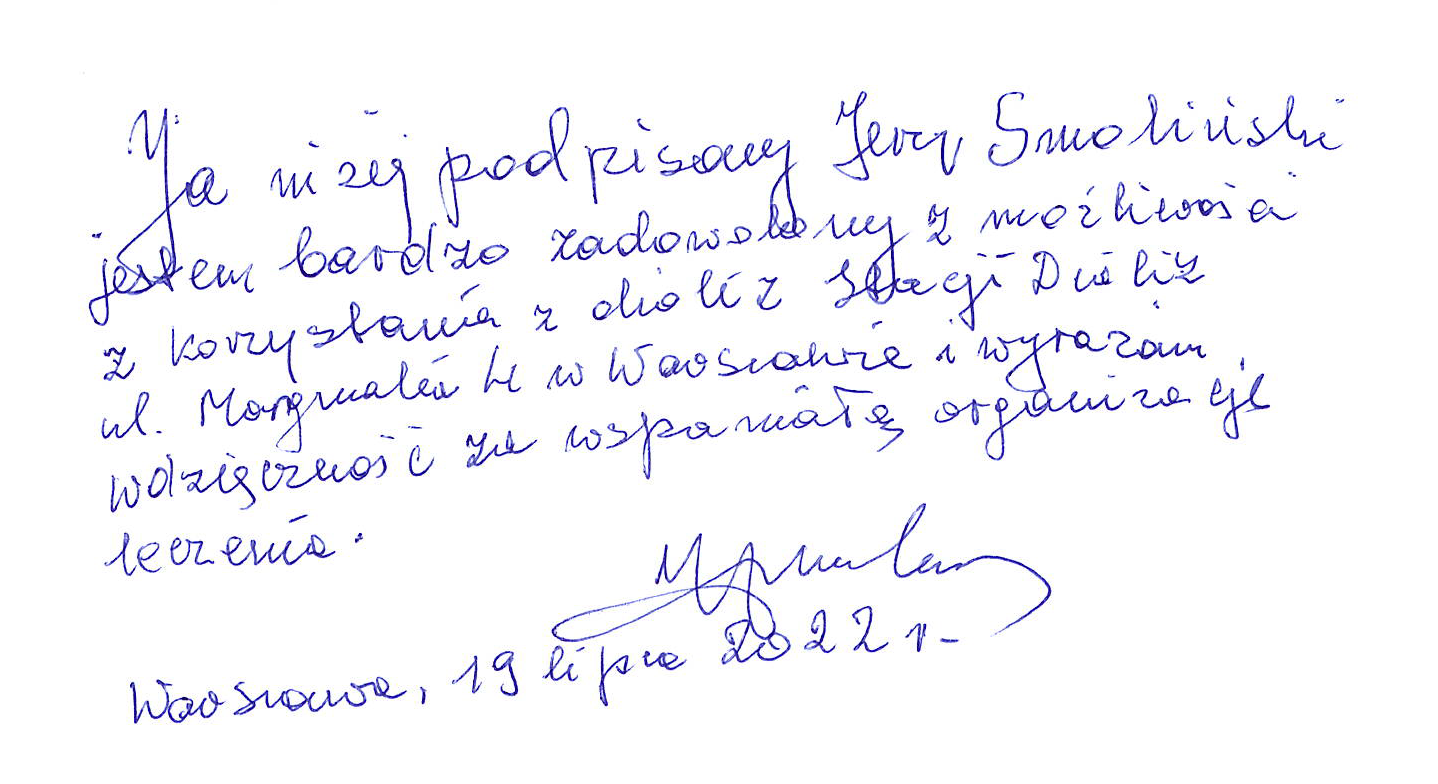 Ja niżej podpisany Jerzy Smoliński
jestem bardzo zadowolony z możliwości
z korzystania z dializ Stacji Dializ
ul. w Warszawie i wyrażam
wdzięczność za wspaniałą organizację
leczenia.
Warszawa, 19 lipca 2022 r.